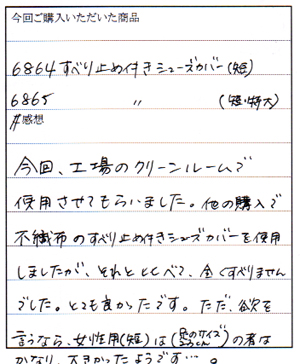 今回ご購入いただいた商品
6864 すべり止め付きシューズカバー(短)
6865 〃 (短・特大)
#感想
今回、工場のクリーンルームで
使用させてもらいました。他の購入で
不織布のすべり止め付きシューズカバーを使用
しましたが、それとくらべて、全くすべりません
でした。とても良かったです。ただ、欲を
言うなら、女性用(短)は(足のサイズ)の者は
かなり、大きかったようです…。